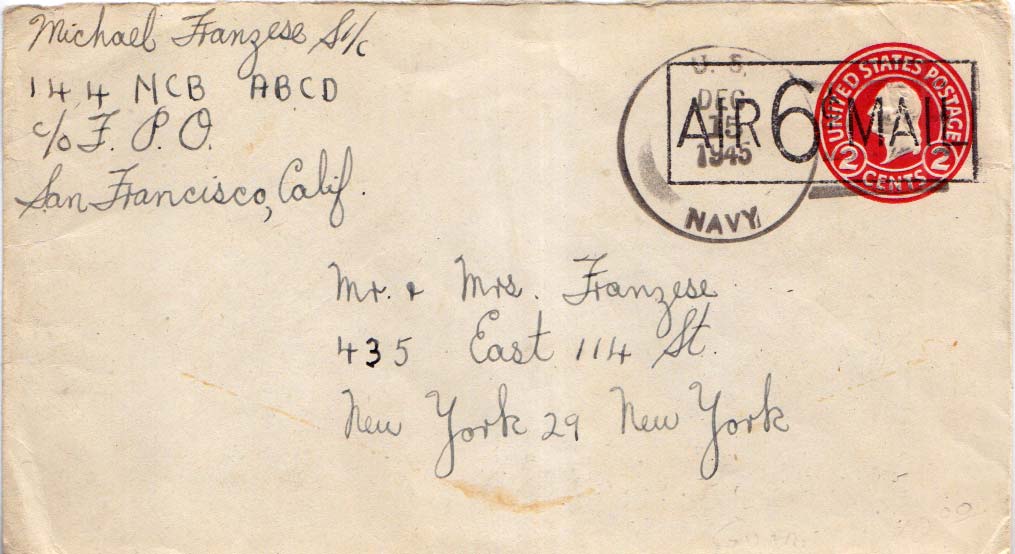 Michael Franzese S1/c
144 NCB ABCD
c/o F. P. O.
San Francisco, Calif.
U. S.
DEC
15
1945
NAVY
AIR 6¢ MAIL
UNITED STATES POSTAGE
2 CENTS 2
Mr. & Mrs. Franzese
435 East 114 St.
New York 29 New York